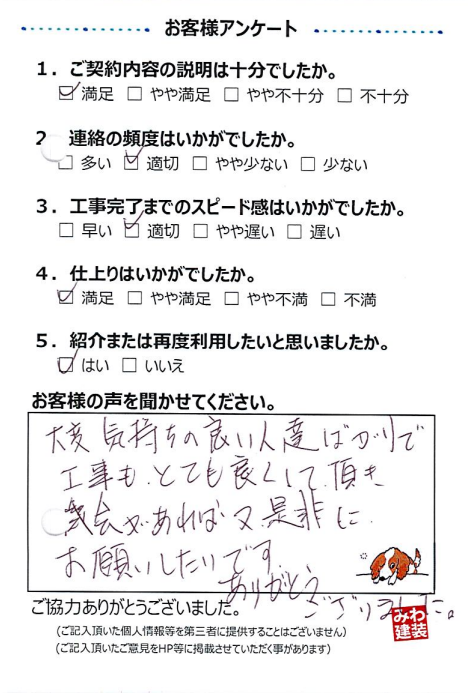 お客様アンケート
1．ご契約内容の説明は十分でしたか。
☑ 満足 □ やや満足 □ やや不十分 □ 不十分
2 連絡の頻度はいかがでしたか。
□ 多い ☑ 適切 □ やや少ない □ 少ない
3．工事完了までのスピード感はいかがでしたか。
□ 早い ☑ 適切 □ やや遅い □ 遅い
4．仕上りはいかがでしたか。
☑ 満足 □ やや満足 □ やや不満 □ 不満
5．紹介または再度利用したいと思いましたか。
☑ はい □ いいえ
お客様の声を聞かせてください。
大変 気持ちの良い人達ばかりで
工事も、とても良くして頂き
機会があれば 又 是非に
お願いしたいです
ありがとう
ございました。
ご協力ありがとうございました。
(ご記入頂いた個人情報等を第三者に提供することはございません)
(ご記入頂いたご意見をHP等に掲載させていただく事があります)
みわ
建装